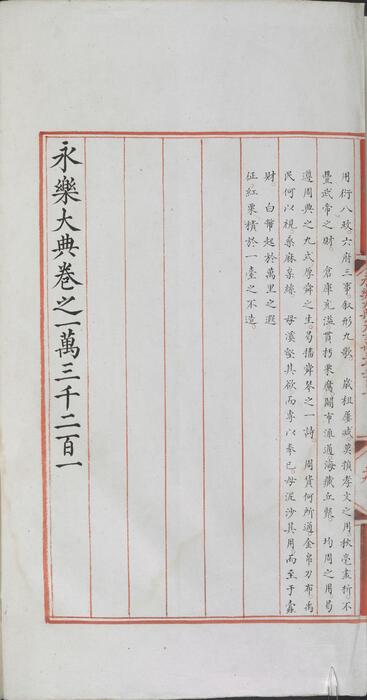 用衍八政。六府三事。叙形九歌。 歲租屢減。莫損孝文之用。秋毫盡析。不
豐武帝之財。 倉庫充溢貫朽粟腐關市流通海藏丘聚。 均周之用。易
遵周典之九式。厚舜之生。曷播舜琴之一詩。 周貨何所通。金帛刀布。禹
民何以視桑麻枲絲。 毋溪壑其欲而專以奉己。毋泥沙其用而至于
財。 白幣起於萬里之遐
征。紅粟積於一臺之不造。
永樂大典卷之一萬三千二百一